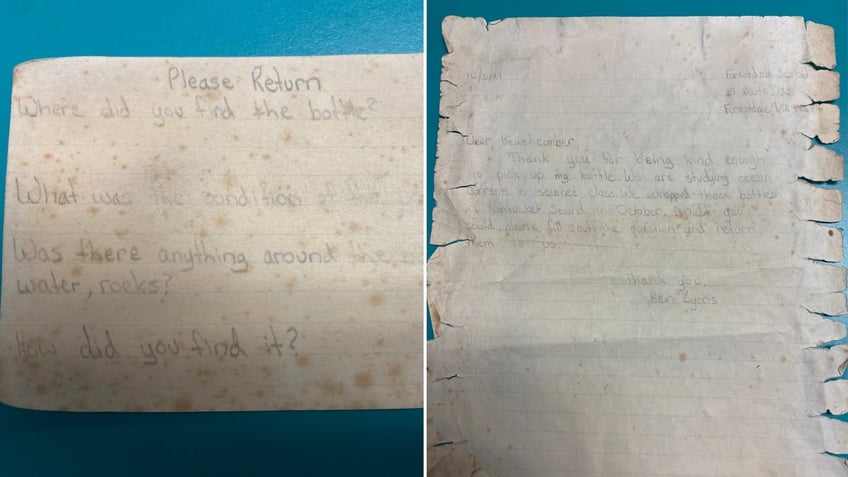 Please Return
Where did you find the bottle?
What was the condition of the
Was there anything around the
water, rocks?
How did you find it?
Forestdale
Forestdale
Dear Beachcomber,
Thank you for being kind enough
to pick up my bottle. We are studying ocean
currents in science class. We dropped these bottles
in Nantucket Sound in October. you
could please fill out the question and return
them to us
Thank you,
Ben Lyons